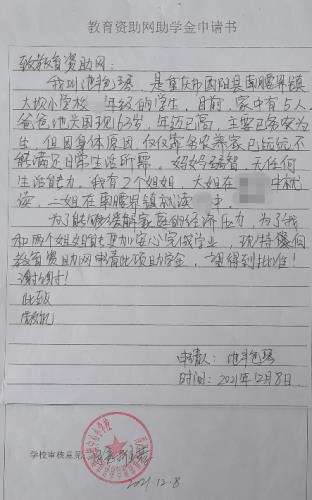 教育资助网助学金申请书
致教育资助网：
我叫池艳琴，是重庆市酉阳县南腰界镇
大坝小学校 年级的学生，目前，家中有5人。
爸爸池兴国现63岁，年迈已高，主要已务农为
生，但因身体原因，仅仅靠务农养家已远远不
能满足日常生活所需。妈妈智，无任何
生活能力。我有2个姐姐，大姐在 中就
读，二姐在南腰界镇就读 中。
为了能够缓解家庭的经济压力，为了我
和两个姐姐能更加安心完成学业，现特像向
教育资助网申请此项助学金，望得到批准！
谢谢！
此致
敬礼
申请人：池艳琴
时间：2021年12月8日
学校审核意见：
2021.12.8